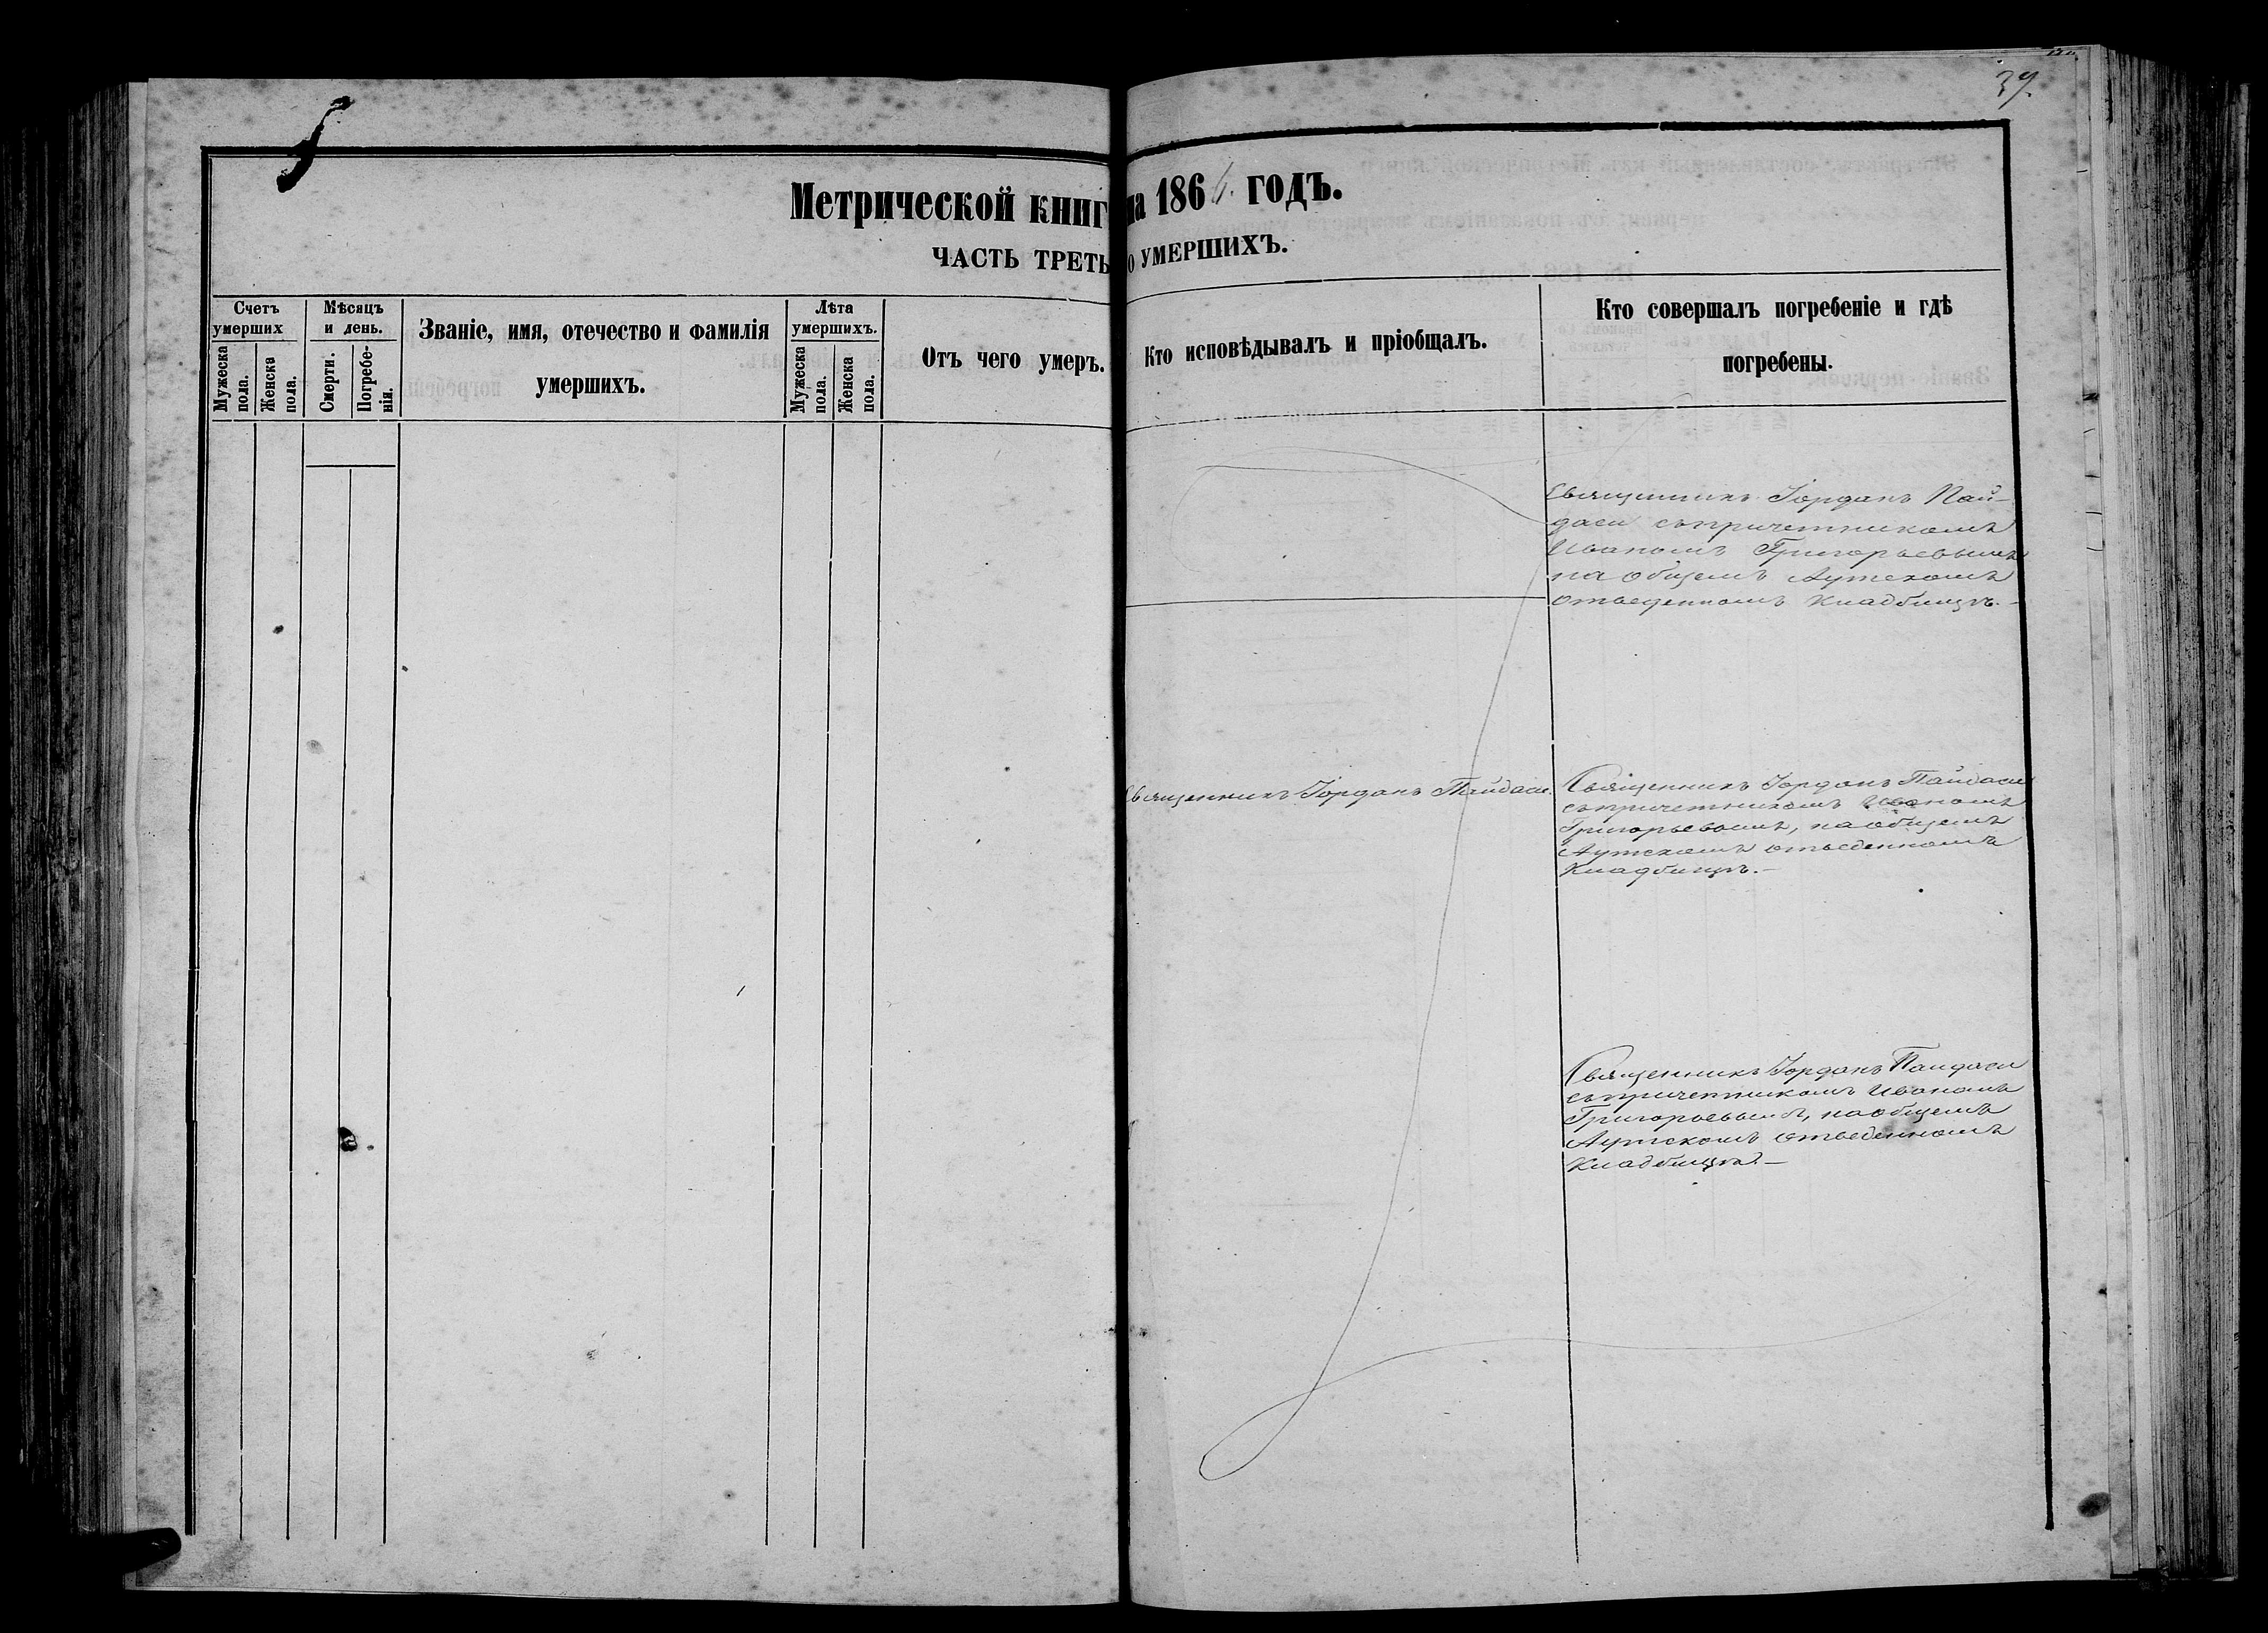 39.
Метрической книг
на 1864. годъ.
ЧАСТЬ ТРЕТЬ
О УМЕРШИХЪ.
Счетъ умерших
Мужеска пола.
Женска пола.
Мѣсяцъ и день.
Смерти.
Погребе-
нія.
Званіе, имя, отечество и фамилія
умершихъ.
Лѣта умершихъ.
Мужеска пола.
Женска пола.
Отъ чего умеръ.
Кто исповѣдывалъ и пріобщалъ.
Кто совершалъ погребеніе и гдѣ
погребены.
Священникъ Іорданъ Пай-
даси съ причетникомъ
Иваномъ Григорьевымъ
на общемъ Аутскомъ
отведенномъ Кладбищѣ.-
Священникъ Іорданъ Пайдаси.
Священникъ Іорданъ Пайдаси
съ причетникомъ Иваномъ
Григорьевымъ, на общемъ
Аутскомъ отведенномъ
Кладбищѣ.-
Священникъ Іорданъ Пайдаси
съ причетникомъ Иваномъ
Григорьевымъ, на общемъ
Аутскомъ отведенномъ
Кладбищѣ.-